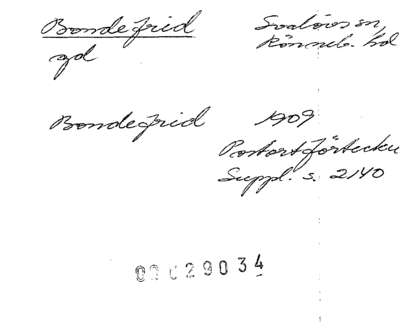 Bondefrid Svalövs sn,
gd Rönneb. hd
Bondefrid 1909
Postortförteckn
Suppl. s. 2140
029034